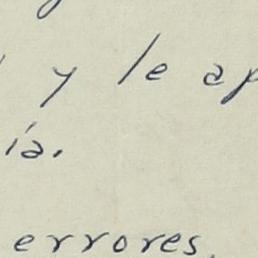 y le ap
ía.
errores.